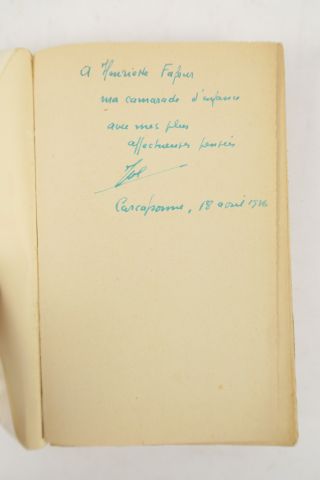 A Henriette
ma camarade d'enfance
avec mes plus
affectueuses pensées
Carcassonne, 18 avril